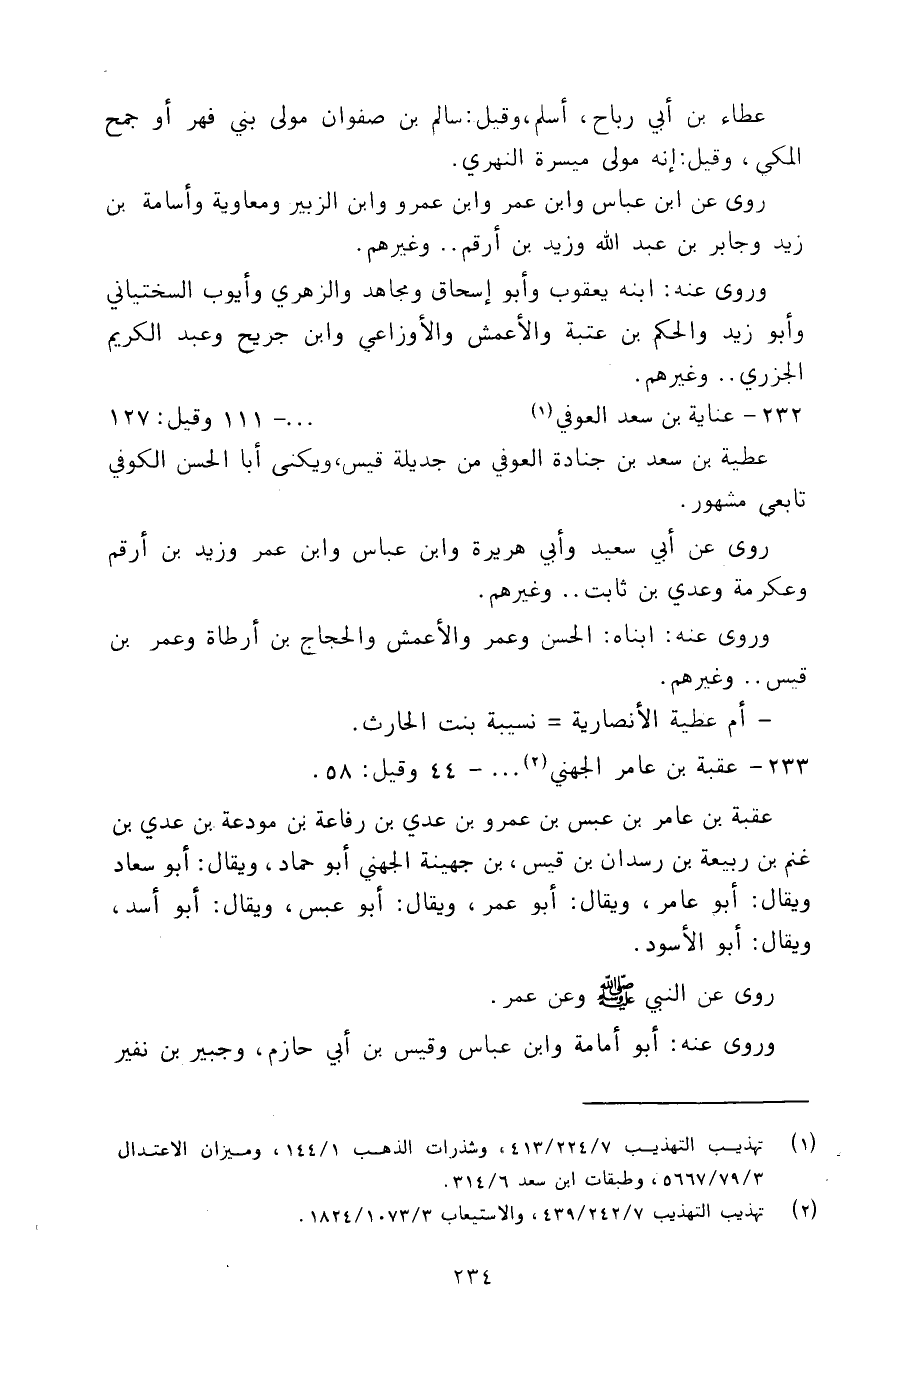 عطاء بن أبي رباح، أسلم،وقيل:سالم بن صفوان مولى بني فهر أو جمح
المكي، وقيل:إنه مولى ميسرة النهري.
روى عن ابن عباس وابن عمر وابن عمرو وابن الزبير ومعاوية وأسامة بن
زيد وجابر بن عبد الله وزيد بن أرقم.. وغيرهم.
وروى عنه: ابنه يعقوب وأبو إسحاق ومجاهد والزهري وأيوب السختياني
وأبو زيد والحكم بن عتبة والأعمش والأوزاعي وابن جريح وعبد الكريم
الجزري.. وغيرهم.
٢٣٢- عناية بن سعد العوفي(١) ...- ١١١ وقيل: ١٢٧
عطية بن سعد بن جنادة العوفي من جديلة قيس،ويكنى أبا الحسن الكوفي
تابعي مشهور.
روى عن أبي سعيد وأبي هريرة وابن عباس وابن عمر وزيد بن أرقم
وعكرمة وعدي بن ثابت.. وغيرهم.
وروى عنه: ابناه: الحسن وعمر والأعمش والحجاج بن أرطاة وعمر بن
قيس.. وغيرهم.
- أم عطية الأنصارية = نسيبة بنت الحارث.
٢٣٣- عقبة بن عامر الجهني(٢)... - ٤٤ وقيل: ٥٨.
عقبة بن عامر بن عبس بن عمرو بن عدي بن رفاعة بن مودعة بن عدي بن
غنم بن ربيعة بن رسدان بن قيس، بن جهينة الجهني أبو حماد، ويقال: أبو سعاد
ويقال: أبو عامر، ويقال: أبو عمر، ويقال: أبو عبس، ويقال: أبو أسد،
ويقال: أبو الأسود.
روى عن النبي ﷺ وعن عمر.
وروى عنه: أبو أمامة وابن عباس وقيس بن أبي حازم، وجبير بن نفير
(١) تهذيب التهذيب ٤١٣/٢٢٤/٧، وشذرات الذهب ١٤٤/١، وميزان الاعتدال
٥٦٦٧/٧٩/٣، وطبقات ابن سعد ٣١٤/٦.
(٢) تهذيب التهذيب ٤٣٩/٢٤٢/٧، والاستيعاب ١٨٢٤/١٠٧٣/٣.
٢٣٤